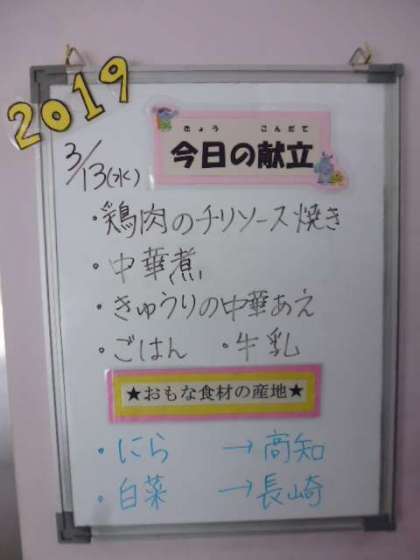 2019
きょう こんだて
今日の献立
3/13(水)
・鶏肉のチリソース焼き
・中華煮
・きゅうりの中華あえ
・ごはん ・牛乳
★おもな食材の産地★
・にら → 高知
・白菜 → 長崎